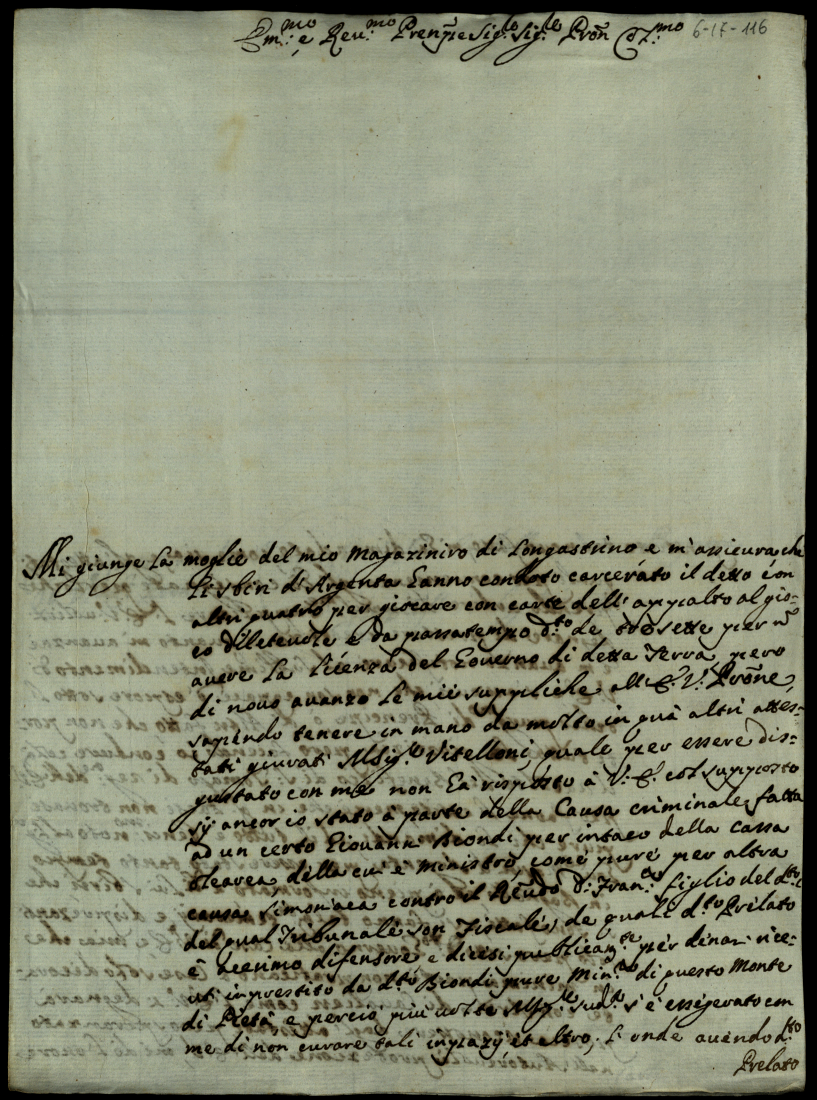 Em.mo e Reu.mo Prenpe Sig.r Sig.r Pron Col.mo 6-17-116
Mi giunge La moglie del mio Magaziniro di Longastrino e m'assicura che
li sbiri d'Argenta hanno condoto carcerato il detto con
altri quatro per giocare con carte dell'appalto al gio-
co diletevole e da passatempo d.to de tresette per nō
avere La licenza del Governo di detta Terra, pero
di novo avanzo Le mie suppliche all'E. V. Prone,
sapendo tenere in mano da molto in quà altri attes-
tati giurati Msig.r Vitelloni, quale per essere dis-
gustato con me non hà risposto à V. E. col supposto
sij ancor io stato à parte della Causa criminale fatta
ad un certo Giovanni Biondi per intaco della cassa
della cui è Ministro, come pure per altra
causa simoniaca contro il Reudo D. Fran.co figlio del d.to
del qual Tribunale son Fiscale, de quali d.to Prelato
è acerimo difensore e dicesi publicam.te per denari rice-
uti impresto da d.to Biondi pure Min.ro di questo Monte
di Pietà, e perciò più volte Msig.r sud.to s'è essagerato con
me di non curare tali impazzj, et altro, L'onde avendo d.to
Prelato